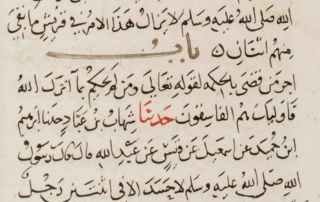 الله صلى الله عليه وسلم لا يزال هذا الامر في قريش ما بقي
منهم اثنان باب
اجر من قضى بالحكمة لقوله تعالى ومن لم يحكم بما انزل الله
فاوليك هم الفاسقون حدثنا شهاب بن عباد حدثنا ابرهيم
ابن حميد عن اسمعيل عن قيس عن عبد الله قال قال رسول
الله صلى الله عليه وسلم لا حسد الا في اثنتين رجل